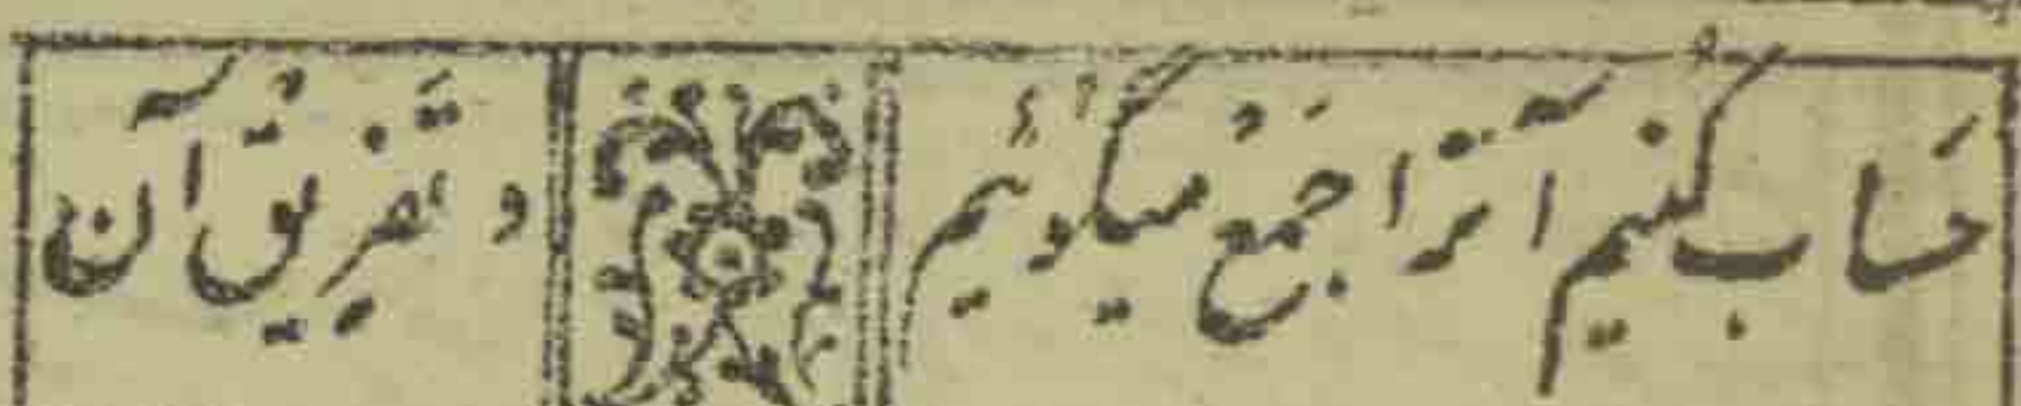 حساب کنیم آنرا جَمْعْ میگوئیم
و تَفْریْق آن